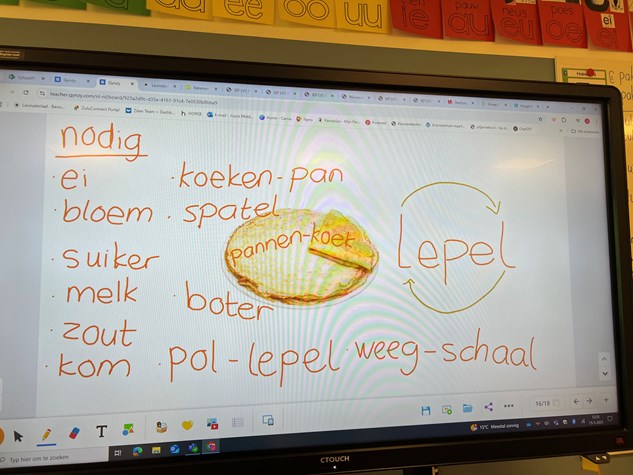 ee oo uu
ie eu oe ei
teacher.gynzy.com
nodig
· ei · koeken-pan
· bloem · spatel
pannen-koek
Lepel
· suiker
· melk · boter
· zout
· kom · pol-lepel · weeg-schaal
16/18
T
Typ hier om te zoeken
15°C Meestal zonnig
CTOUCH